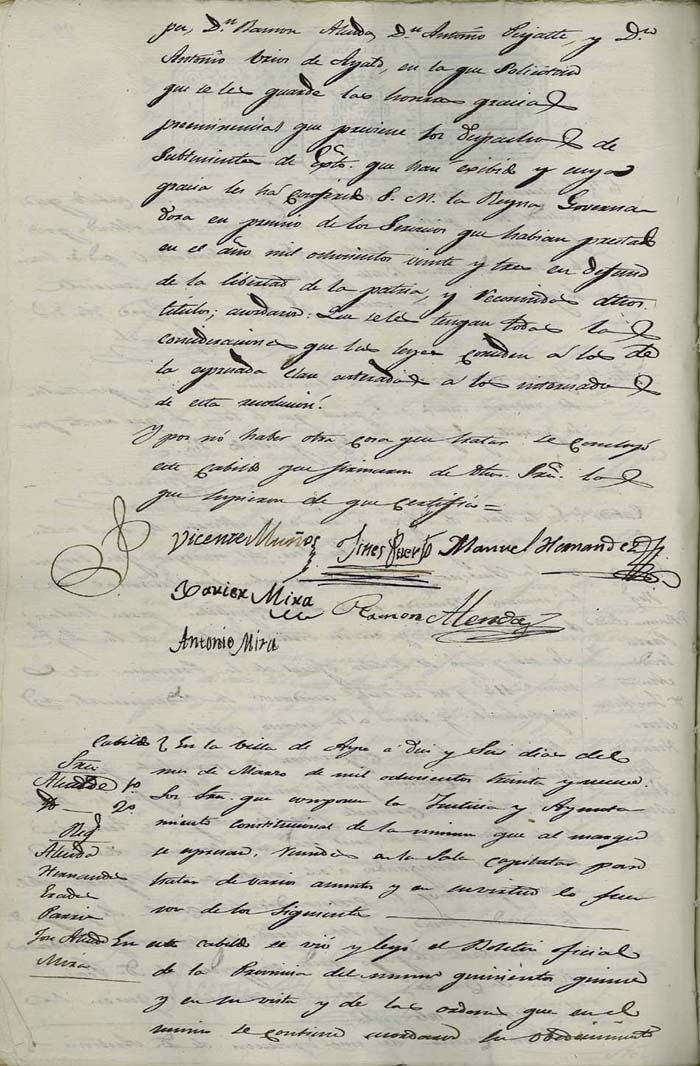 D.n Ramon Alenda, D.n Antonio y D.n
Antonio de Ayala, en la que Solicitan
que se les guarde las honras gracias
preeminencias que previene los Despachos de
Subtenientes de Exto. que han exibido y cuya
gracia les ha conferido S. M. la Reyna Governa
dora en premio de los Servicios que habian prestado
en el año mil ochocientos veinte y tres en defensa
de la libertad de la patria, y
titulos; acordaron: Que se les tengan todas las
consideraciones que las leyes conceden á los de
la espresada clase á los interesados
de esta resolucion.
Y por nó haber otra cosa que tratar se concluyó
este Cabildo que firmaron de dhos. Sres. los
que supieron de que Certifico =
Vicente Muños Jines Puerto Manuel Hernandez
Xavier Mira Ramon Alenda
Antonio Mira
Cabildo En la Villa de Aspe á Diez y Seis dias del
mes de Marzo de mil ochocientos treinta y nueve.
Los Sres. que componen la Justicia y Ayunta
miento constitucional de la misma que al margen
se espresan, reunidos en la Sala capitular para
tratar de varios asuntos y en su virtud lo fue
ron de los Siguiente
Sres.
Alcalde 1o
Yo 2o
Reg
Alenda
Hernandez
Parra
Jose Alenda
Mira
En este cabildo se vió y leyó el Boletin oficial
de la Provincia del numero quinientos quince
y en su vista y de las ordenes que en el
mismo se contiene acordaron su obedecimiento